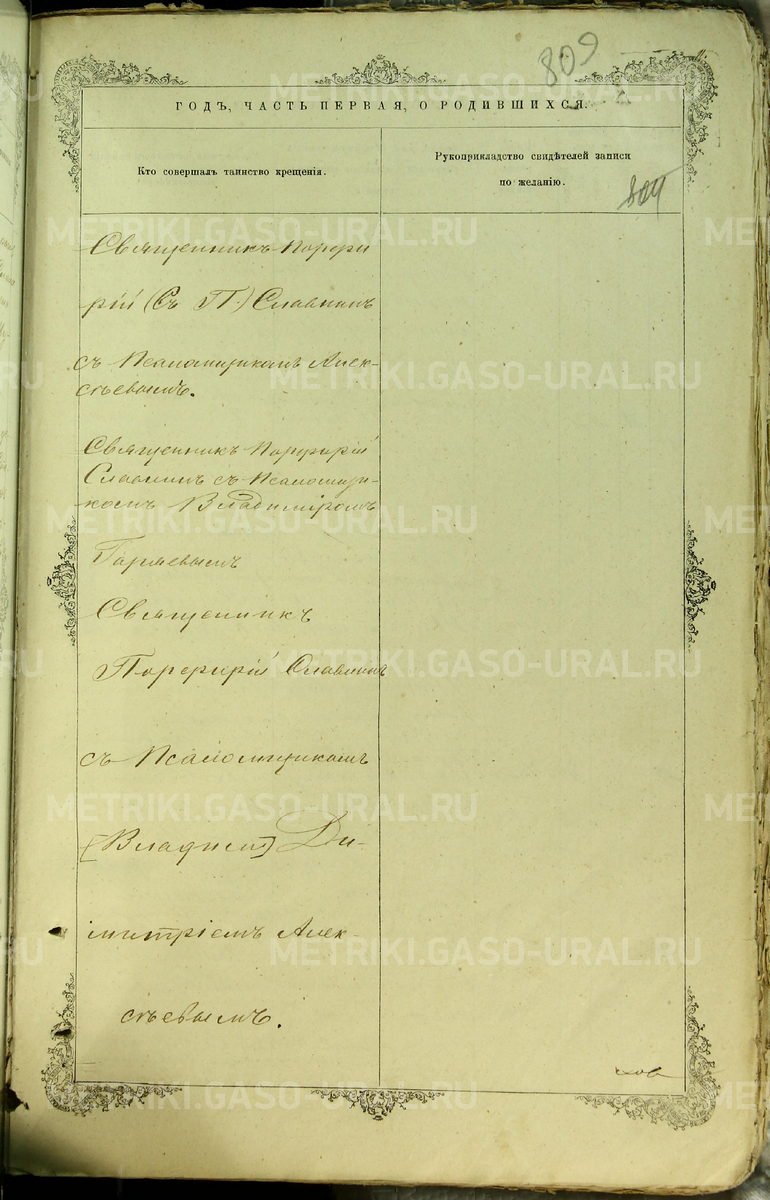 809
ГОДЪ, ЧАСТЬ ПЕРВАЯ, О РОДИВШИХСЯ.
Кто совершалъ таинство крещенія.
Рукоприкладство свидѣтелей записи
по желанію.
804
Священникъ Порфи
рій (Съ П.) Славнинъ
съ Псаломщикомъ Алек-
сѣевымъ.
Священникъ Порфирій
Славнинъ съ Псаломщи-
комъ Владиміромъ
Священникъ
Порфирій Славнинъ
съ Псаломщикомъ
[Владим] Ди-
митріемъ Алек-
сѣевымъ.
METRIKI.GASO-URAL.RU